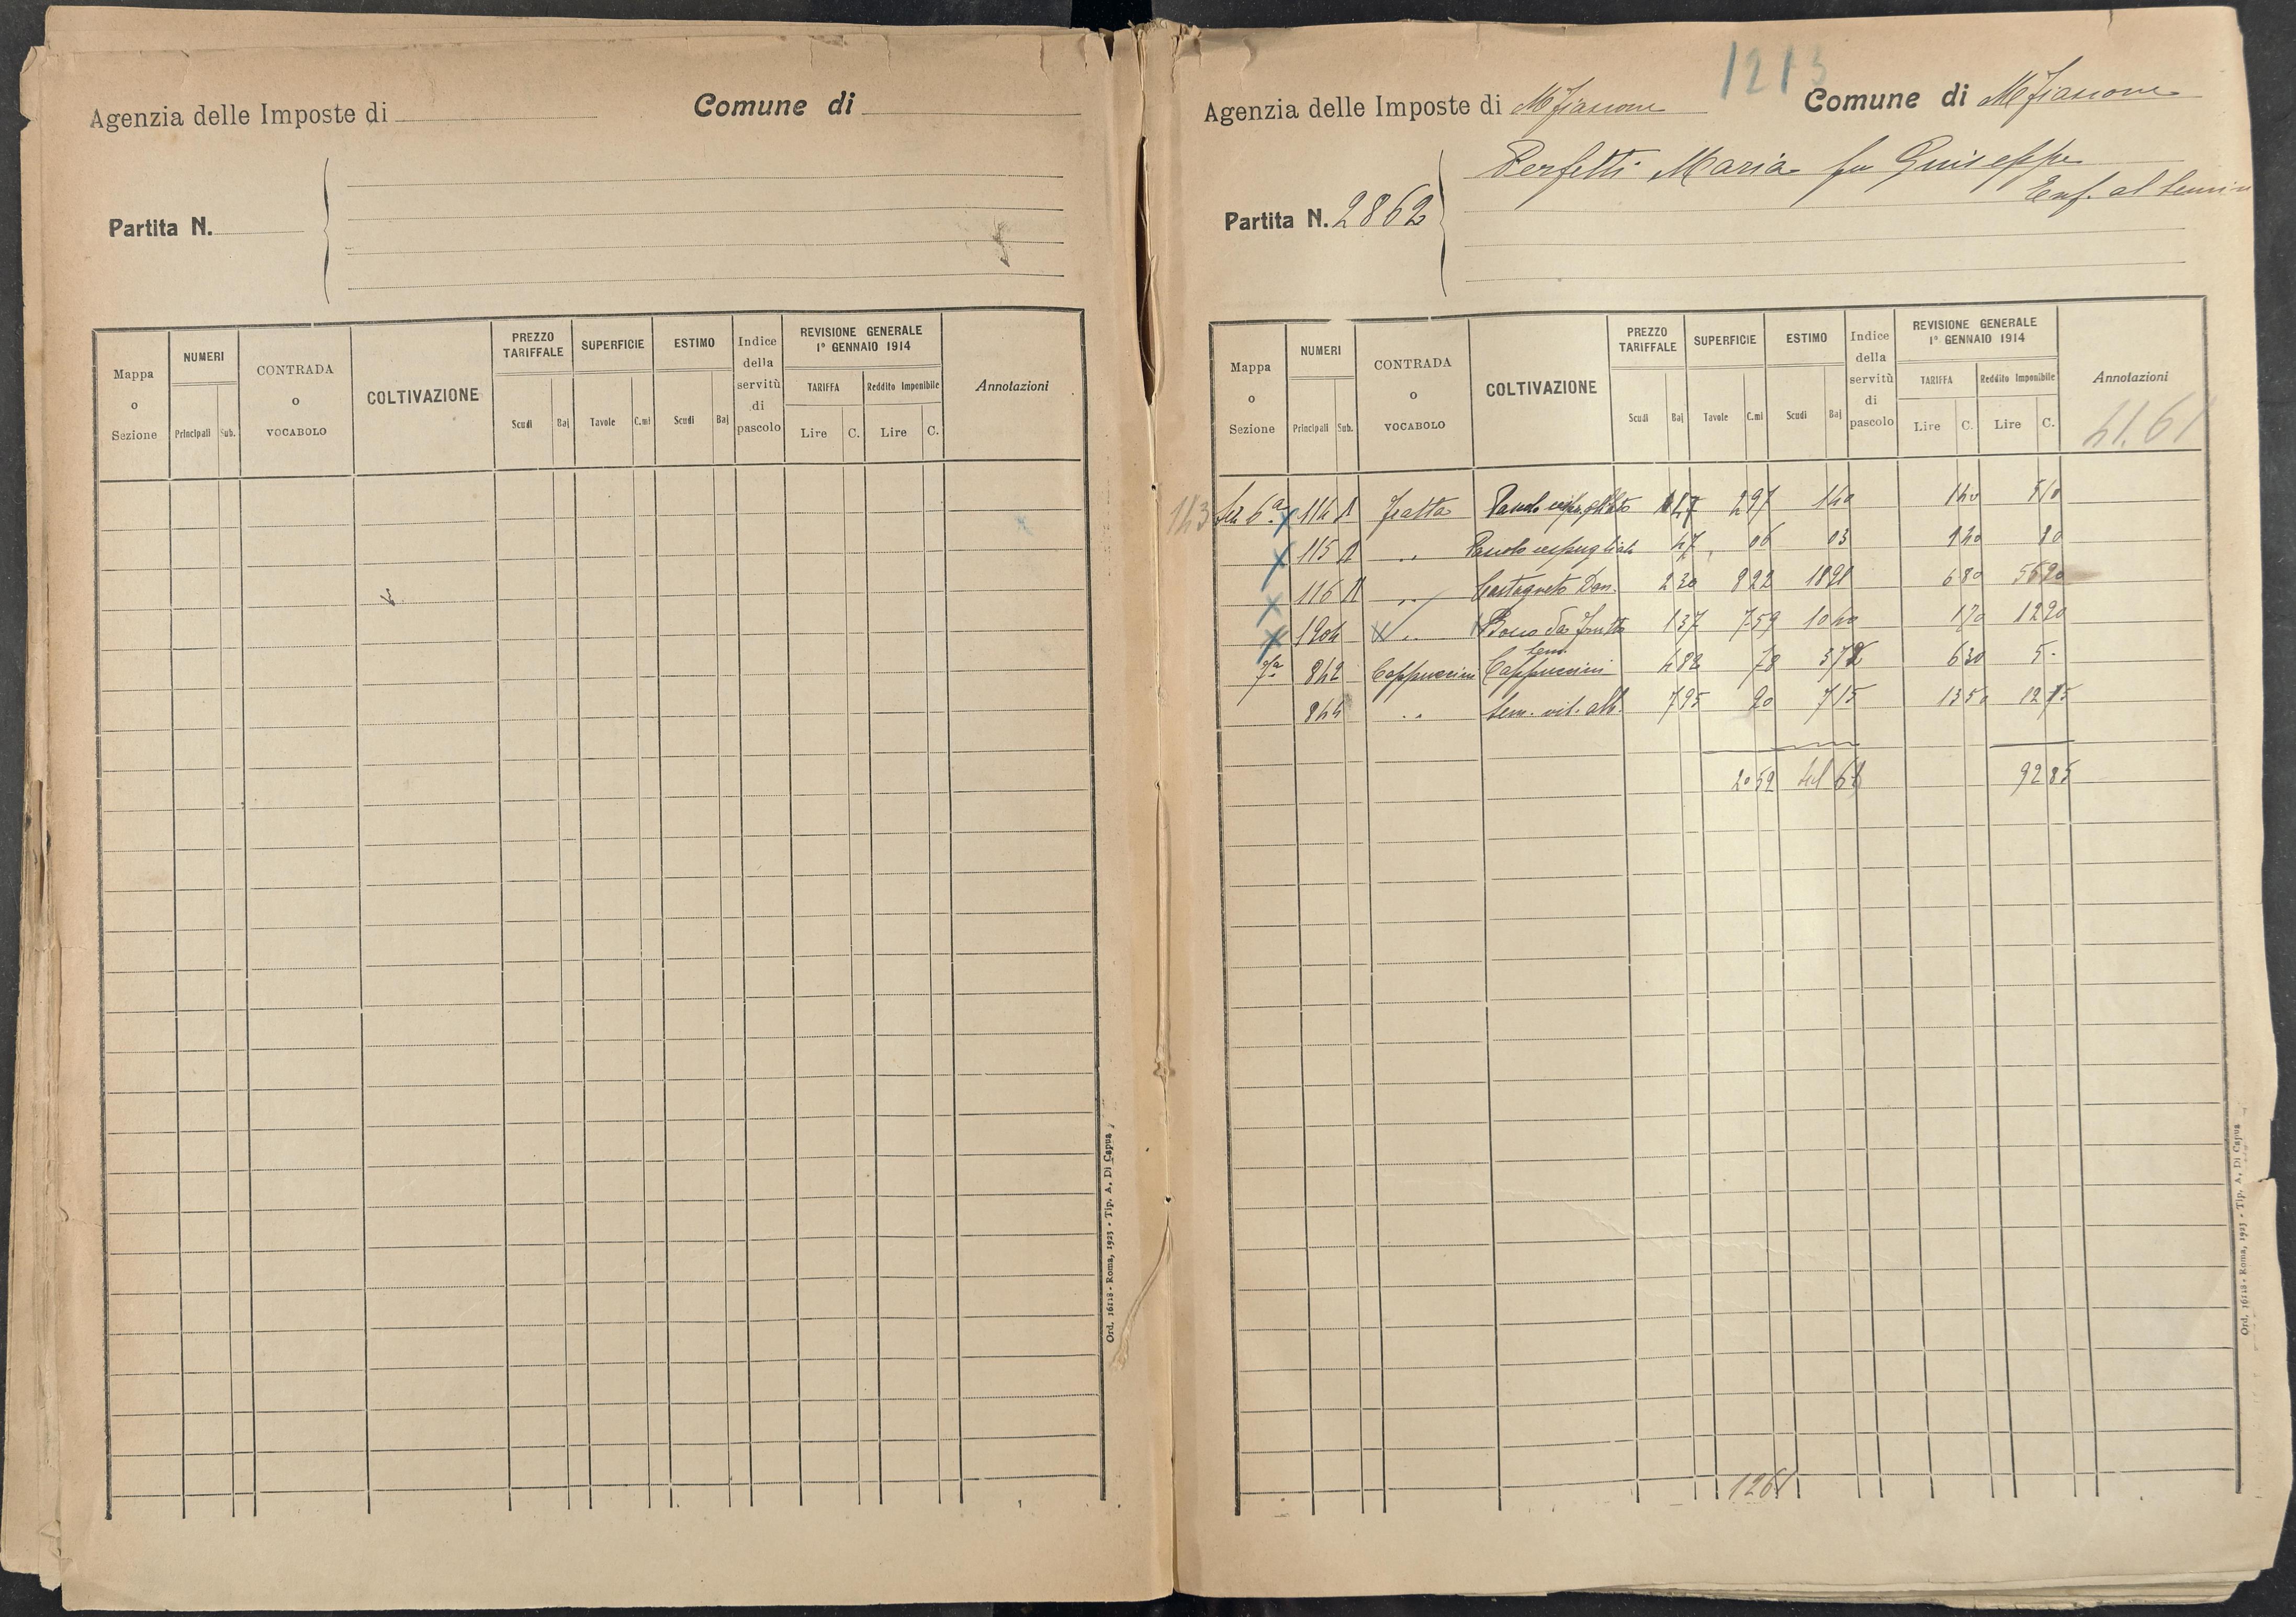 Agenzia delle Imposte di
Comune di
Partita N.
Mappa o Sezione
NUMERI
Principali Sub.
CONTRADA o VOCABOLO
COLTIVAZIONE
PREZZO TARIFFALE
Scudi Baj
SUPERFICIE
Tavole C.mi
ESTIMO
Scudi Baj
Indice della servitù di pascolo
REVISIONE GENERALE
1° GENNAIO 1914
TARIFFA
Lire C.
Reddito Imponibile
Lire C.
Annotazioni
Ord. 16118 - Roma, 1923 - Tip. A. Di Capua
1213
Agenzia delle Imposte di Mfiascone
Comune di Mfiascone
Perfetti Maria fu Giuseppe
Enf. al
Partita N. 2862
Mappa o Sezione
NUMERI
Principali Sub.
CONTRADA o VOCABOLO
COLTIVAZIONE
PREZZO TARIFFALE
Scudi Baj
SUPERFICIE
Tavole C.mi
ESTIMO
Scudi Baj
Indice della servitù di pascolo
REVISIONE GENERALE
1° GENNAIO 1914
TARIFFA
Lire C.
Reddito Imponibile
Lire C.
Annotazioni
41.61
143 Sez 6a x 114 Fratta Pascolo 47 297 140 140 510
x 115 " Pascolo cespugliato 47 06 03 140 80
x 116 " Castagneto Dom. 230 822 1891 680 5620
x 1904 x " Bosco da frutto 137 759 1040 170 1290
7a 842 Cappuccini Sem. Cappuccini 482 78 372 630 5-
844 " Sem. vit. alb. 795 90 715 1350 1285
2059 41 61 9285
1261
Ord. 16118 - Roma, 1923 - Tip. A. Di Capua